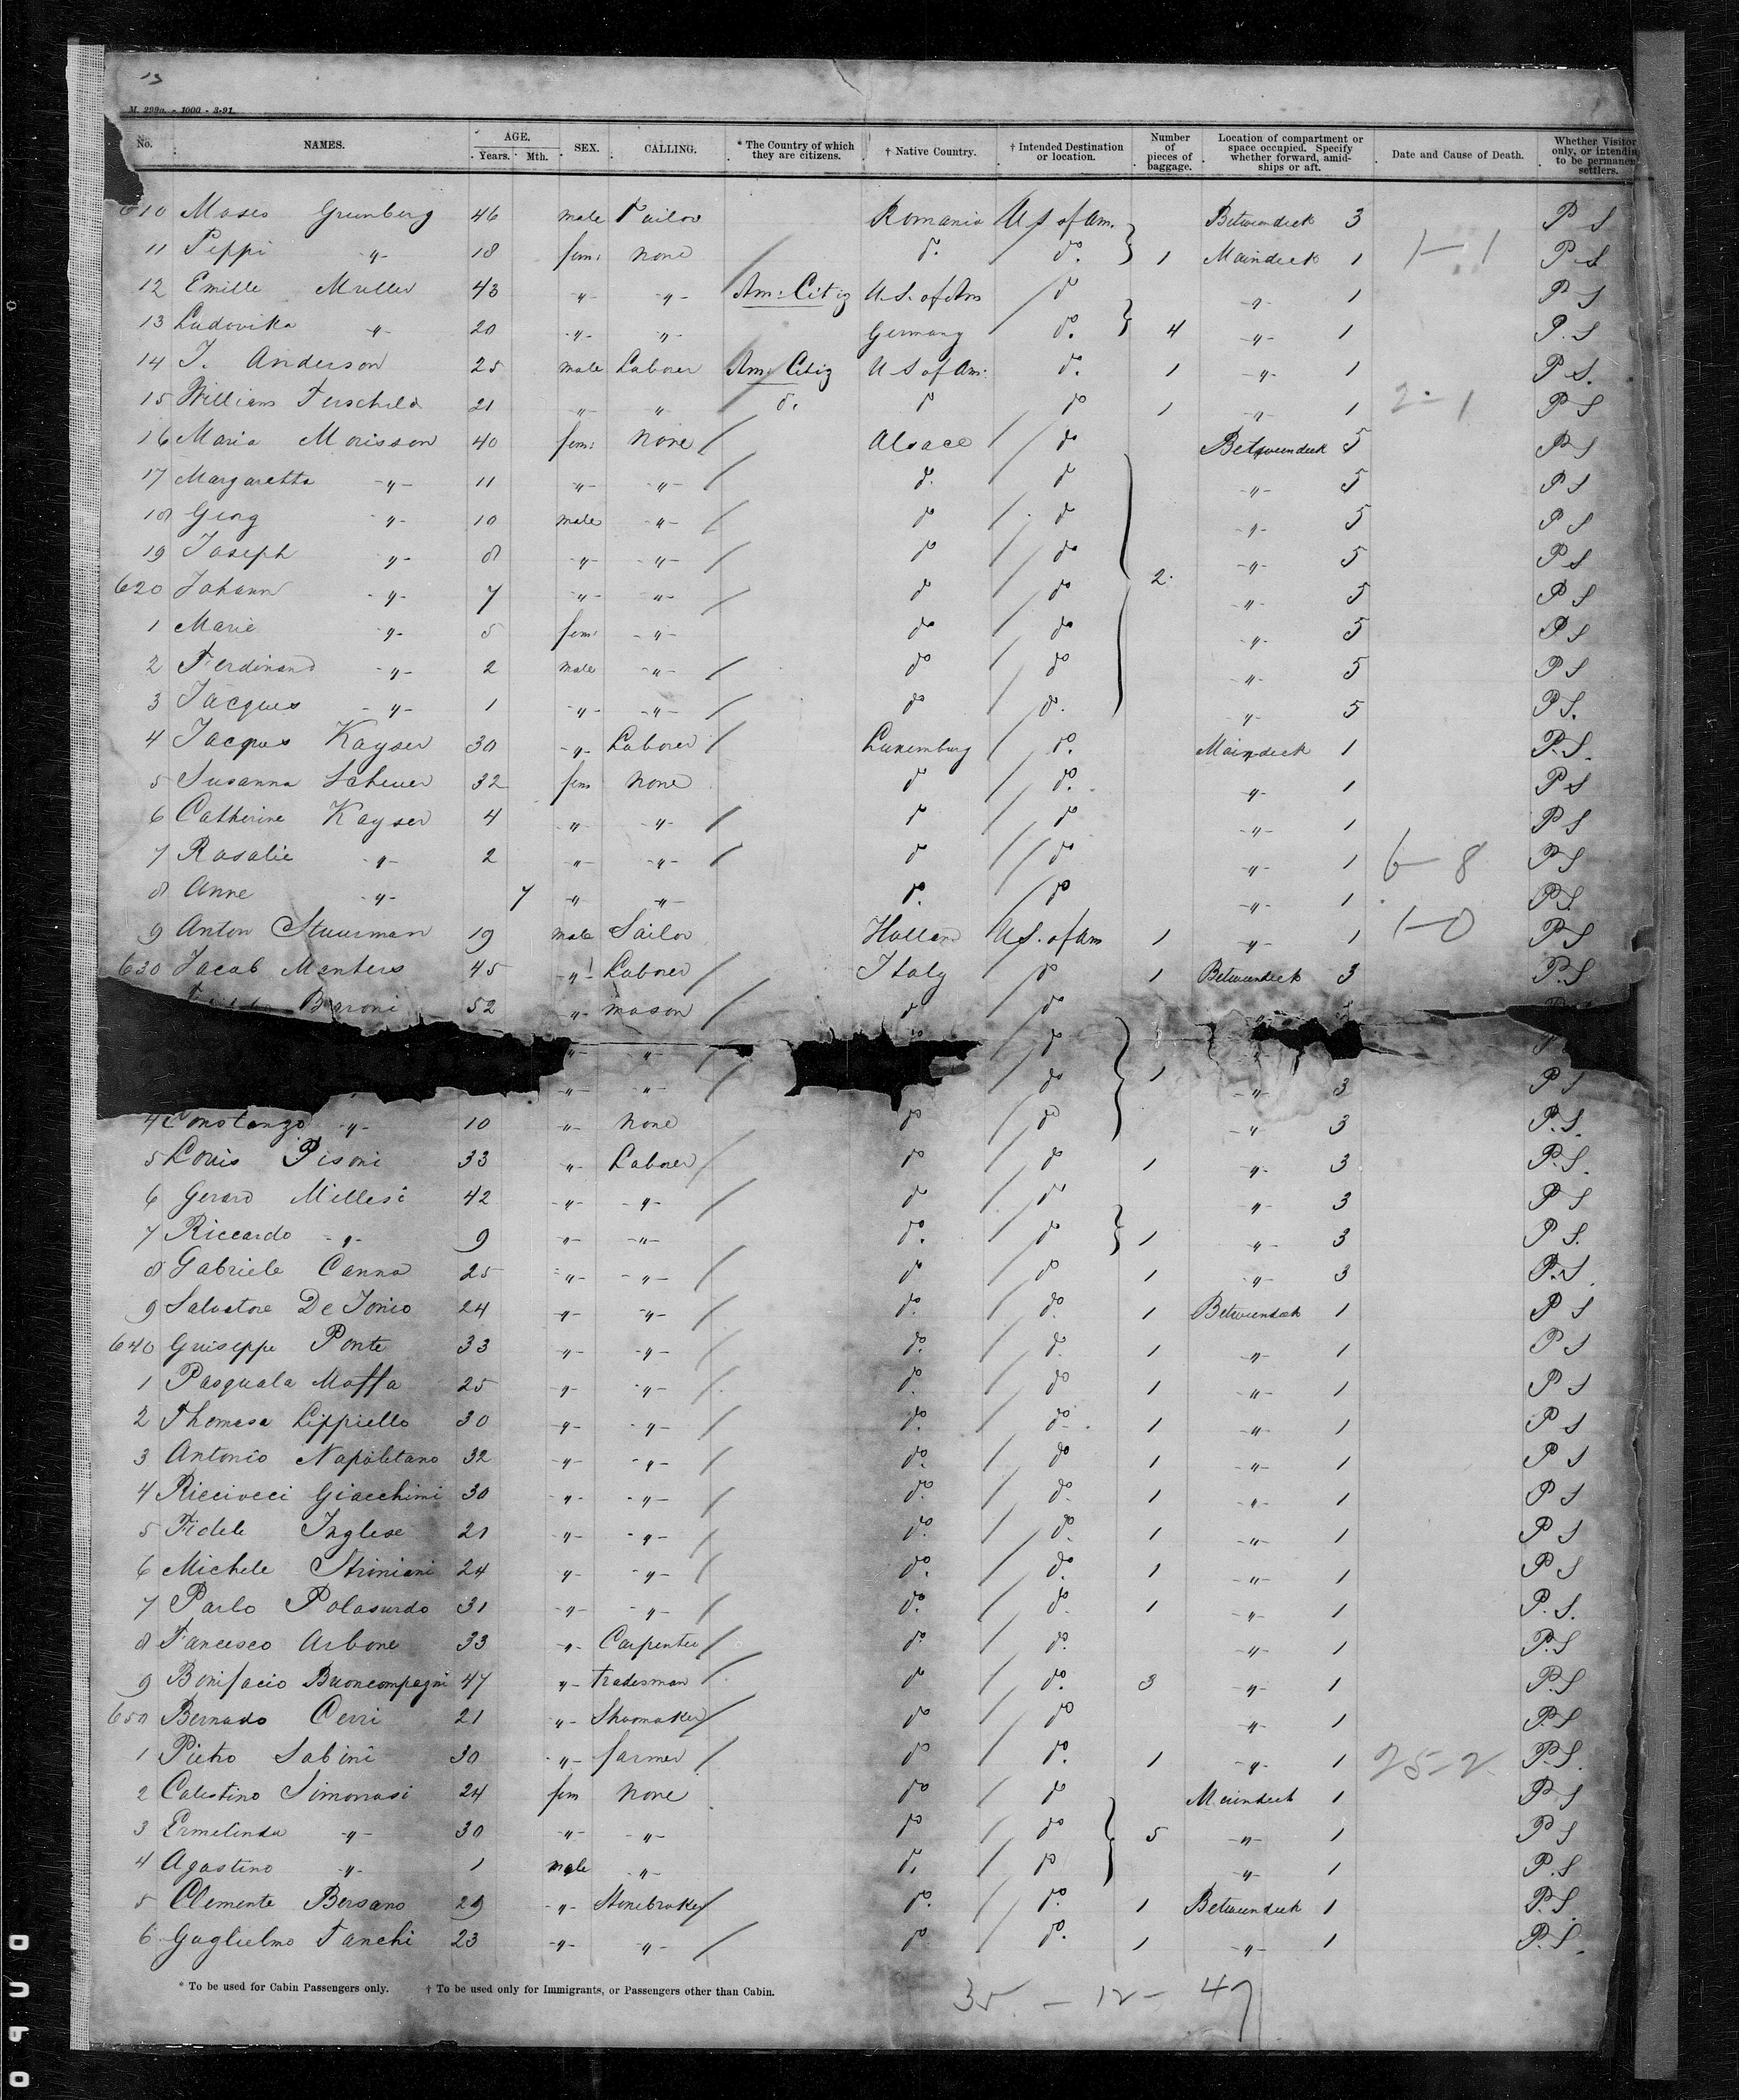 13
M. 299a. - 1000 - 3-91.
No. NAMES. AGE. Years. Mth. SEX. CALLING. * The Country of which they are citizens. † Native Country. † Intended Destination or location. Number of pieces of baggage. Location of compartment or space occupied. Specify whether forward, amidships or aft. Date and Cause of Death. Whether Visitor only, or intending to be permanent settlers.
610 Moses Grunberg 46 male Tailor Romania U S of Am. Betweendeck 3 P S
11 Peppi -"- 18 fem: none / do. / do. 1 Maindeck 1 1-1 P S
12 Emille Muller 43 -"- -"- Am: Citiz U.S. of Am / do -"- 1 P S
13 Ludovika -"- 20 -"- -"- Germany / do. 4 -"- 1 P.S
14 J. Anderson 25 male Laborer Am: Citiz U S of Am: do. 1 -"- 1 P S.
15 William Ferschild 21 -"- -"- do. do do 1 -"- 1 2-1 P S
16 Maria Morisson 40 fem: none / Alsace / do Betweendeck 5 P S
17 Margaretta -"- 11 -"- -"- / do. / do -"- 5 P S
18 Georg -"- 10 male -"- / do / do -"- 5 P S
19 Joseph -"- 8 -"- -"- / do / do -"- 5 P S
620 Johann -"- 7 -"- -"- / do / do 2. -"- 5 P S
1 Marie -"- 5 fem: -"- do / do -"- 5 P S
2 Ferdinand -"- 2 male -"- / do / do -"- 5 P S
3 Jacques -"- 1 -"- -"- / do / do. -"- 5 P S.
4 Jacques Kayser 30 -"- Laborer / Luxemburg / do. Maindeck 1 P.S.
5 Susanna Scheuer 32 fem none do / do. -"- 1 P S
6 Catherine Kayser 4 -"- -"- / do / do -"- 1 P S
7 Rosalie -"- 2 -"- -"- / do / do -"- 1 6-8 P S
8 Anne -"- 7 -"- -"- do. / do -"- 1 P S
9 Anton Stuurman 19 male Sailor Holland U S. of Am 1 -"- 1 1-0 P S
630 Jacob Menters 45 -"- Laborer / Italy / do 1 Betweendeck 3 P.S
Baroni 52 -"- mason / do / do
-"- -"- / / do
-"- -"- / / do 1 -"- 3 P S
4 Constanzo -"- 10 -"- none do / do -"- 3 P.S.
5 Louis Pisoni 33 -"- Laborer / do / do 1 -"- 3 P.S.
6 Gerard Millesi 42 -"- -"- / do / do -"- 3 P S
7 Riccardo -"- 9 -"- -"- do. / do 1 -"- 3 P S.
8 Gabriele Canna 25 -"- -"- / do / do 1 -"- 3 P.S.
9 Salvatore De Jonio 24 -"- -"- / do. / do. 1 Betweendeck 1 P S
640 Guiseppe Ponte 33 -"- -"- / do. / do. 1 -"- 1 P S
1 Pasquala Maffa 25 -"- -"- / do. / do 1 -"- 1 P S
2 Thomasa Lippiello 30 -"- -"- / do. / do 1 -"- 1 P S
3 Antonio Napolitano 32 -"- -"- / do. / do 1 -"- 1 P S
4 Ricciocci Giacchimi 30 -"- -"- / do. / do. 1 -"- 1 P S
5 Fidele Inglese 21 -"- -"- / do. / do. 1 -"- 1 P S
6 Michele Striniani 24 -"- -"- / do. / do. 1 -"- 1 P S
7 Parlo Polasurdo 31 -"- -"- / do. / do. 1 -"- 1 P.S.
8 Fancesco Arbone 33 -"- Carpenter / do. / do. -"- 1 P.S
9 Bonifacio Buoncompagni 47 -"- tradesman / do / do. 3 -"- 1 P.S
650 Bernado Cerri 21 -"- Shoomaker / do / do -"- 1 P.S
1 Pietro Sabini 30 -"- farmer / do / do. 1 -"- 1 25-2 P.S.
2 Calestino Simonasi 24 fem none do / do Maindeck 1 P S
3 Ermelinda -"- 30 -"- -"- do / do 5 -"- 1 P S
4 Agostino -"- 1 male -"- do. / do -"- 1 P.S
5 Clemente Bersano 29 -"- Stonebroker / do. / do. 1 Betweendeck 1 P.S.
6 Guglielmo Fanchi 23 -"- -"- / do / do. 1 -"- 1 P.S.
* To be used for Cabin Passengers only. † To be used only for Immigrants, or Passengers other than Cabin.
35 - 12 - 47